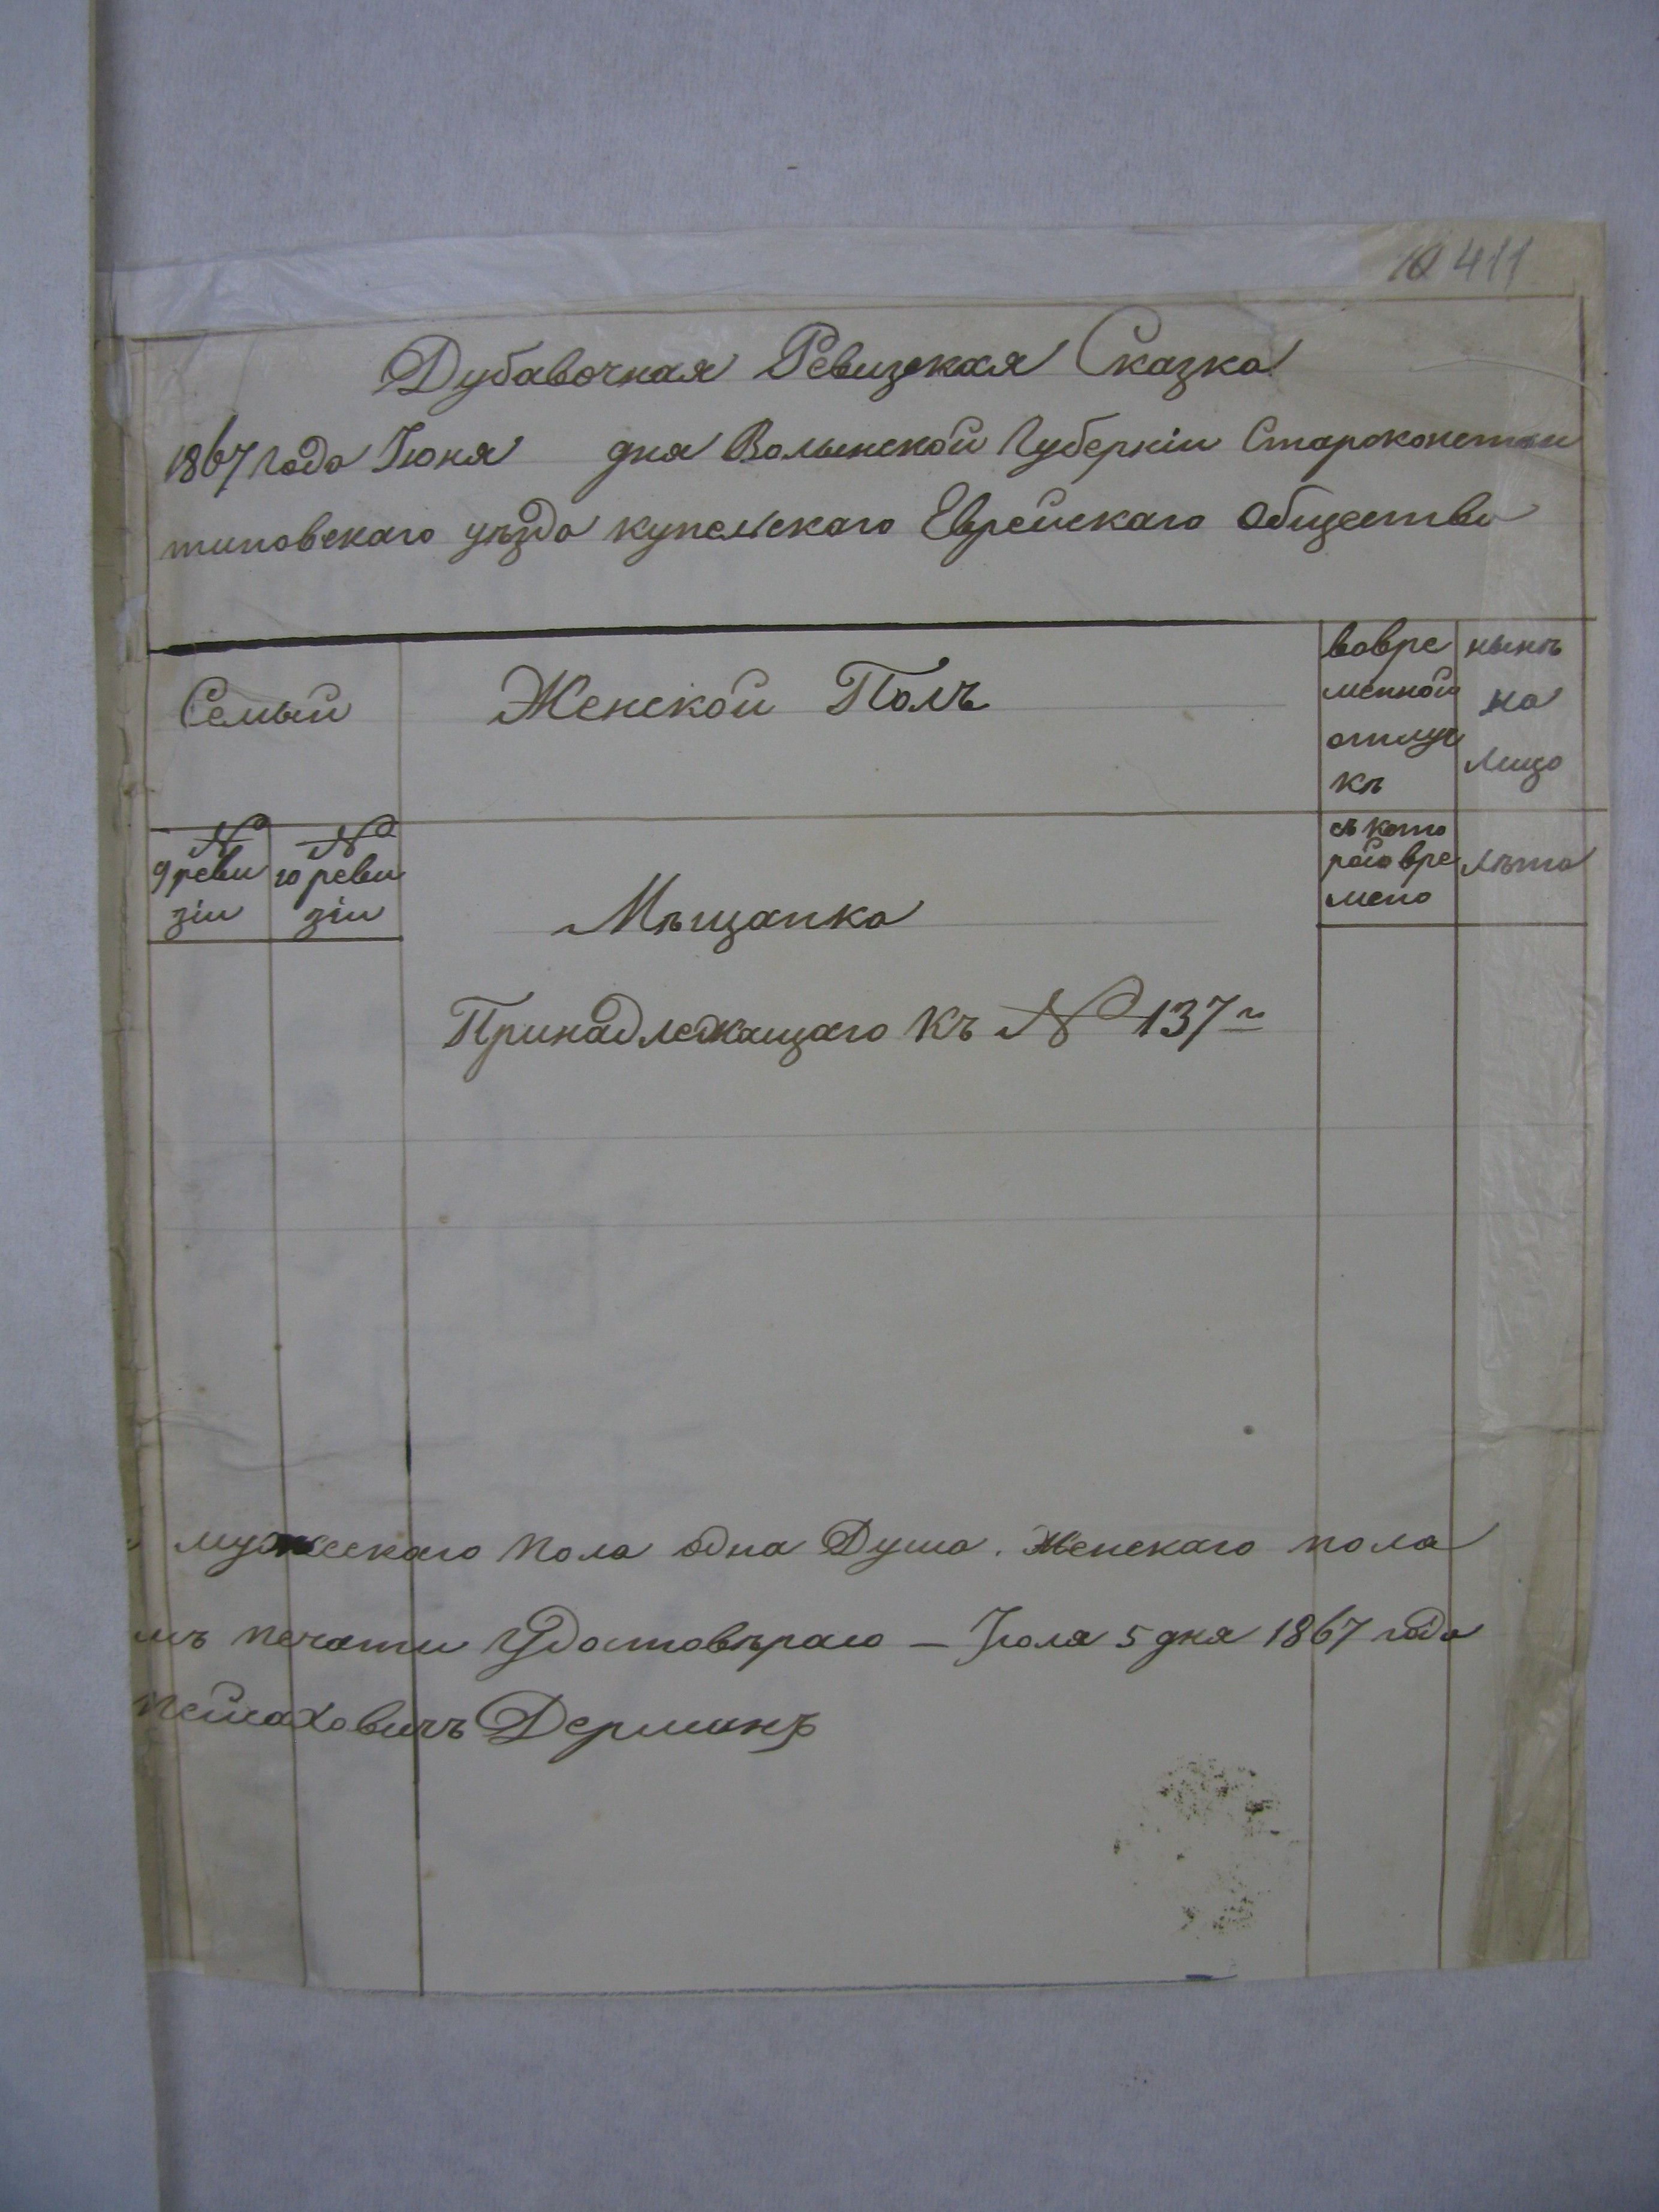 411
Дубавочная Ревизская Сказка
1867 года Іюня дня Волынской Губерніи Староконстан
тиновскаго уѣзда купельскаго Еврейскаго Общества
Семьи
Женской Полъ
вовре
менной
отлуч
кѣ
нынѣ
на
лицо
№
9 реви
зіи
№
10 реви
зіи
Мѣщанка
съ кото
раго вре
мено
лѣта
Принадлежащаго къ № 137
мужескаго пола одна Душа. Женскаго пола
мъ печати Удостовѣраю — Іюля 5 дня 1867 года
Пейсаховичъ Дерманъ